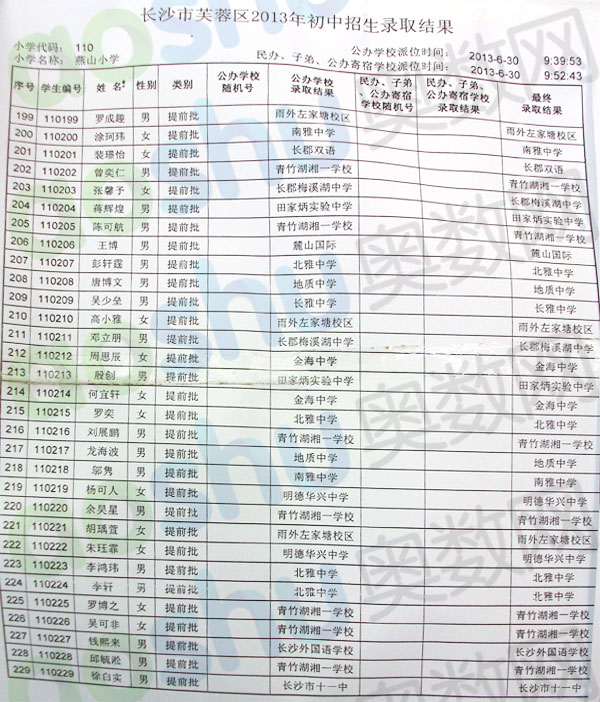 长沙市芙蓉区2013年初中招生录取结果
小学代码: 110 公办学校派位时间: 2013-6-30 9:39:53
小学名称: 燕山小学 民办、子弟、公办寄宿学校派位时间: 2013-6-30 9:52:43
序号 学生编号 姓名 性别 类别 公办学校随机号 公办学校录取结果 民办、子弟、公办寄宿学校随机号 民办、子弟、公办寄宿学校录取结果 最终录取结果
199 110199 罗成趣 男 提前批 雨外左家塘校区 雨外左家塘校区
200 110200 涂珂玮 女 提前批 南雅中学 南雅中学
201 110201 裴璟怡 女 提前批 长郡双语 长郡双语
202 110202 曾奕仁 男 提前批 青竹湖湘一学校 青竹湖湘一学校
203 110203 张馨予 女 提前批 长郡梅溪湖中学 长郡梅溪湖中学
204 110204 蒋辉煌 男 提前批 田家炳实验中学 田家炳实验中学
205 110205 陈可航 男 提前批 青竹湖湘一学校 青竹湖湘一学校
206 110206 王博 男 提前批 麓山国际 麓山国际
207 110207 彭轩霆 男 提前批 北雅中学 北雅中学
208 110208 唐博文 男 提前批 地质中学 地质中学
209 110209 吴少垒 男 提前批 长雅中学 长雅中学
210 110210 高小雅 女 提前批 雨外左家塘校区 雨外左家塘校区
211 110211 邓立朋 男 提前批 长郡梅溪湖中学 长郡梅溪湖中学
212 110212 周思辰 女 提前批 金海中学 金海中学
213 110213 殷创 男 提前批 田家炳实验中学 田家炳实验中学
214 110214 何宜轩 女 提前批 金海中学 金海中学
215 110215 罗奕 女 提前批 北雅中学 北雅中学
216 110216 刘展鹏 男 提前批 青竹湖湘一学校 青竹湖湘一学校
217 110217 龙海波 男 提前批 地质中学 地质中学
218 110218 邬隽 男 提前批 南雅中学 南雅中学
219 110219 杨可人 女 提前批 明德华兴中学 明德华兴中学
220 110220 余昊星 男 提前批 青竹湖湘一学校 青竹湖湘一学校
221 110221 胡瑀萱 女 提前批 雨外左家塘校区 雨外左家塘校区
222 110222 朱珏霏 女 提前批 明德华兴中学 明德华兴中学
223 110223 李鸿玮 男 提前批 北雅中学 北雅中学
224 110224 李轩 男 提前批 北雅中学 北雅中学
225 110225 罗博之 女 提前批 青竹湖湘一学校 青竹湖湘一学校
226 110226 吴可非 女 提前批 青竹湖湘一学校 青竹湖湘一学校
227 110227 钱熙来 男 提前批 长沙外国语学校 长沙外国语学校
228 110228 邱毓淞 男 提前批 青竹湖湘一学校 青竹湖湘一学校
229 110229 徐白实 男 提前批 长沙市十一中 长沙市十一中